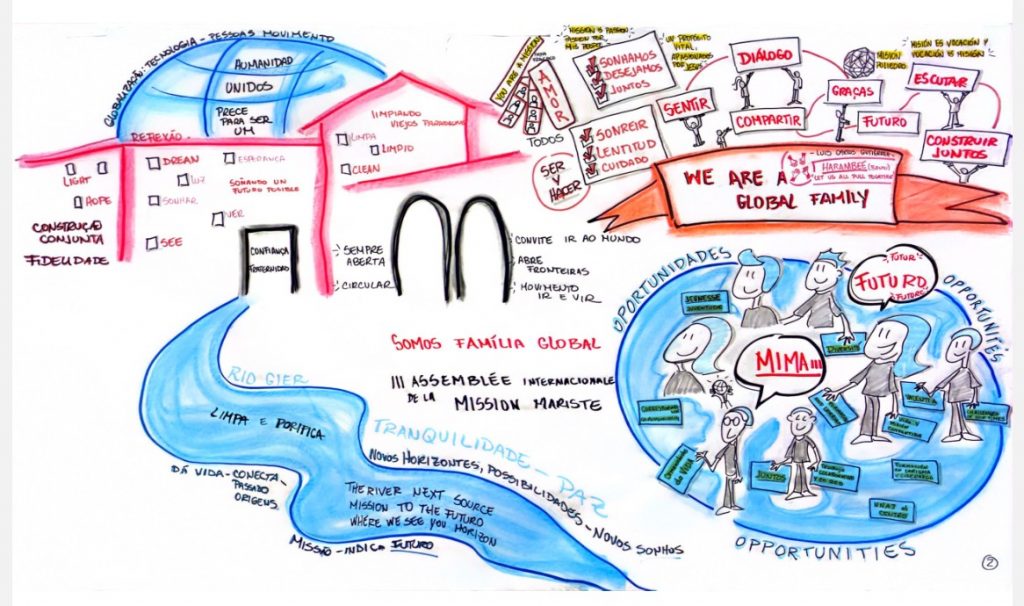 GLOBALIZAÇÃO: TECNOLOGIA - PESSOAS MOVIMENTO
HUMANIDAD
UNIDOS
PRECE
PARA SER
UM
REFLEXÃO
LIGHT
HOPE
CONSTRUÇÃO
CONJUNTA
FIDELIDADE
DREAN
ESPERANCA
LUZ
SOÑANDO UN
FUTURO POSIBLE
SONHAR
VER
SEE
CONFIANÇA
FRATERNIDAD
LIMPIANDO
VIEJOS PARADIGMAS
LIMPA
LIMPIO
CLEAN
SEMPRE
ABERTA
CIRCULAR
CONVITE IR AO MUNDO
ABRE
FRONTEIRAS
MOVIMENTO
IR E VIR
SOMOS FAMÍLIA GLOBAL
III ASSEMBLÉE INTERNACIONALE
DE LA MISSION MARISTE
RIO GIER
LIMPA E PURIFICA
TRANQUILIDADE - PAZ
NOVOS HORIZONTES, POSSIBILIDADES - NOVOS SONHOS
DÁ VIDA - CONECTA -
PASSADO
ORIGENS
THE RIVER NEXT SOURCE
MISSION TO THE FUTURO
WHERE WE SEE YOU HORIZON
MISSÃO - INDICA FUTURO
YOU ARE A MISSION
AMOR
TODOS
SER
Y
HACER
SONHAMOS
DESEJAMOS
JUNTOS
SONREIR
LENTITUD
CUIDADO
UN PROPÓSITO
VITAL,
APASIONADOS
POR JESÚS
SENTIR
DIÁLOGO
COMPARTIR
GRAÇAS
MISIÓN
FUTURO
MISIÓN ES VOCACIÓN Y
VOCACIÓN ES MISIÓN
ESCUTAR
CONSTRUIR
JUNTOS
WE ARE A
GLOBAL FAMILY
HARAMBEE
LET US ALL PULL TOGETHER
OPORTUNIDADES
OPPORTUNITÉS
OPPORTUNITIES
FUTUR
FUTURO
FUTURE
MIMA III
JEUNESSE
DIVERSITÉ
JUNTOS
VIDA
②